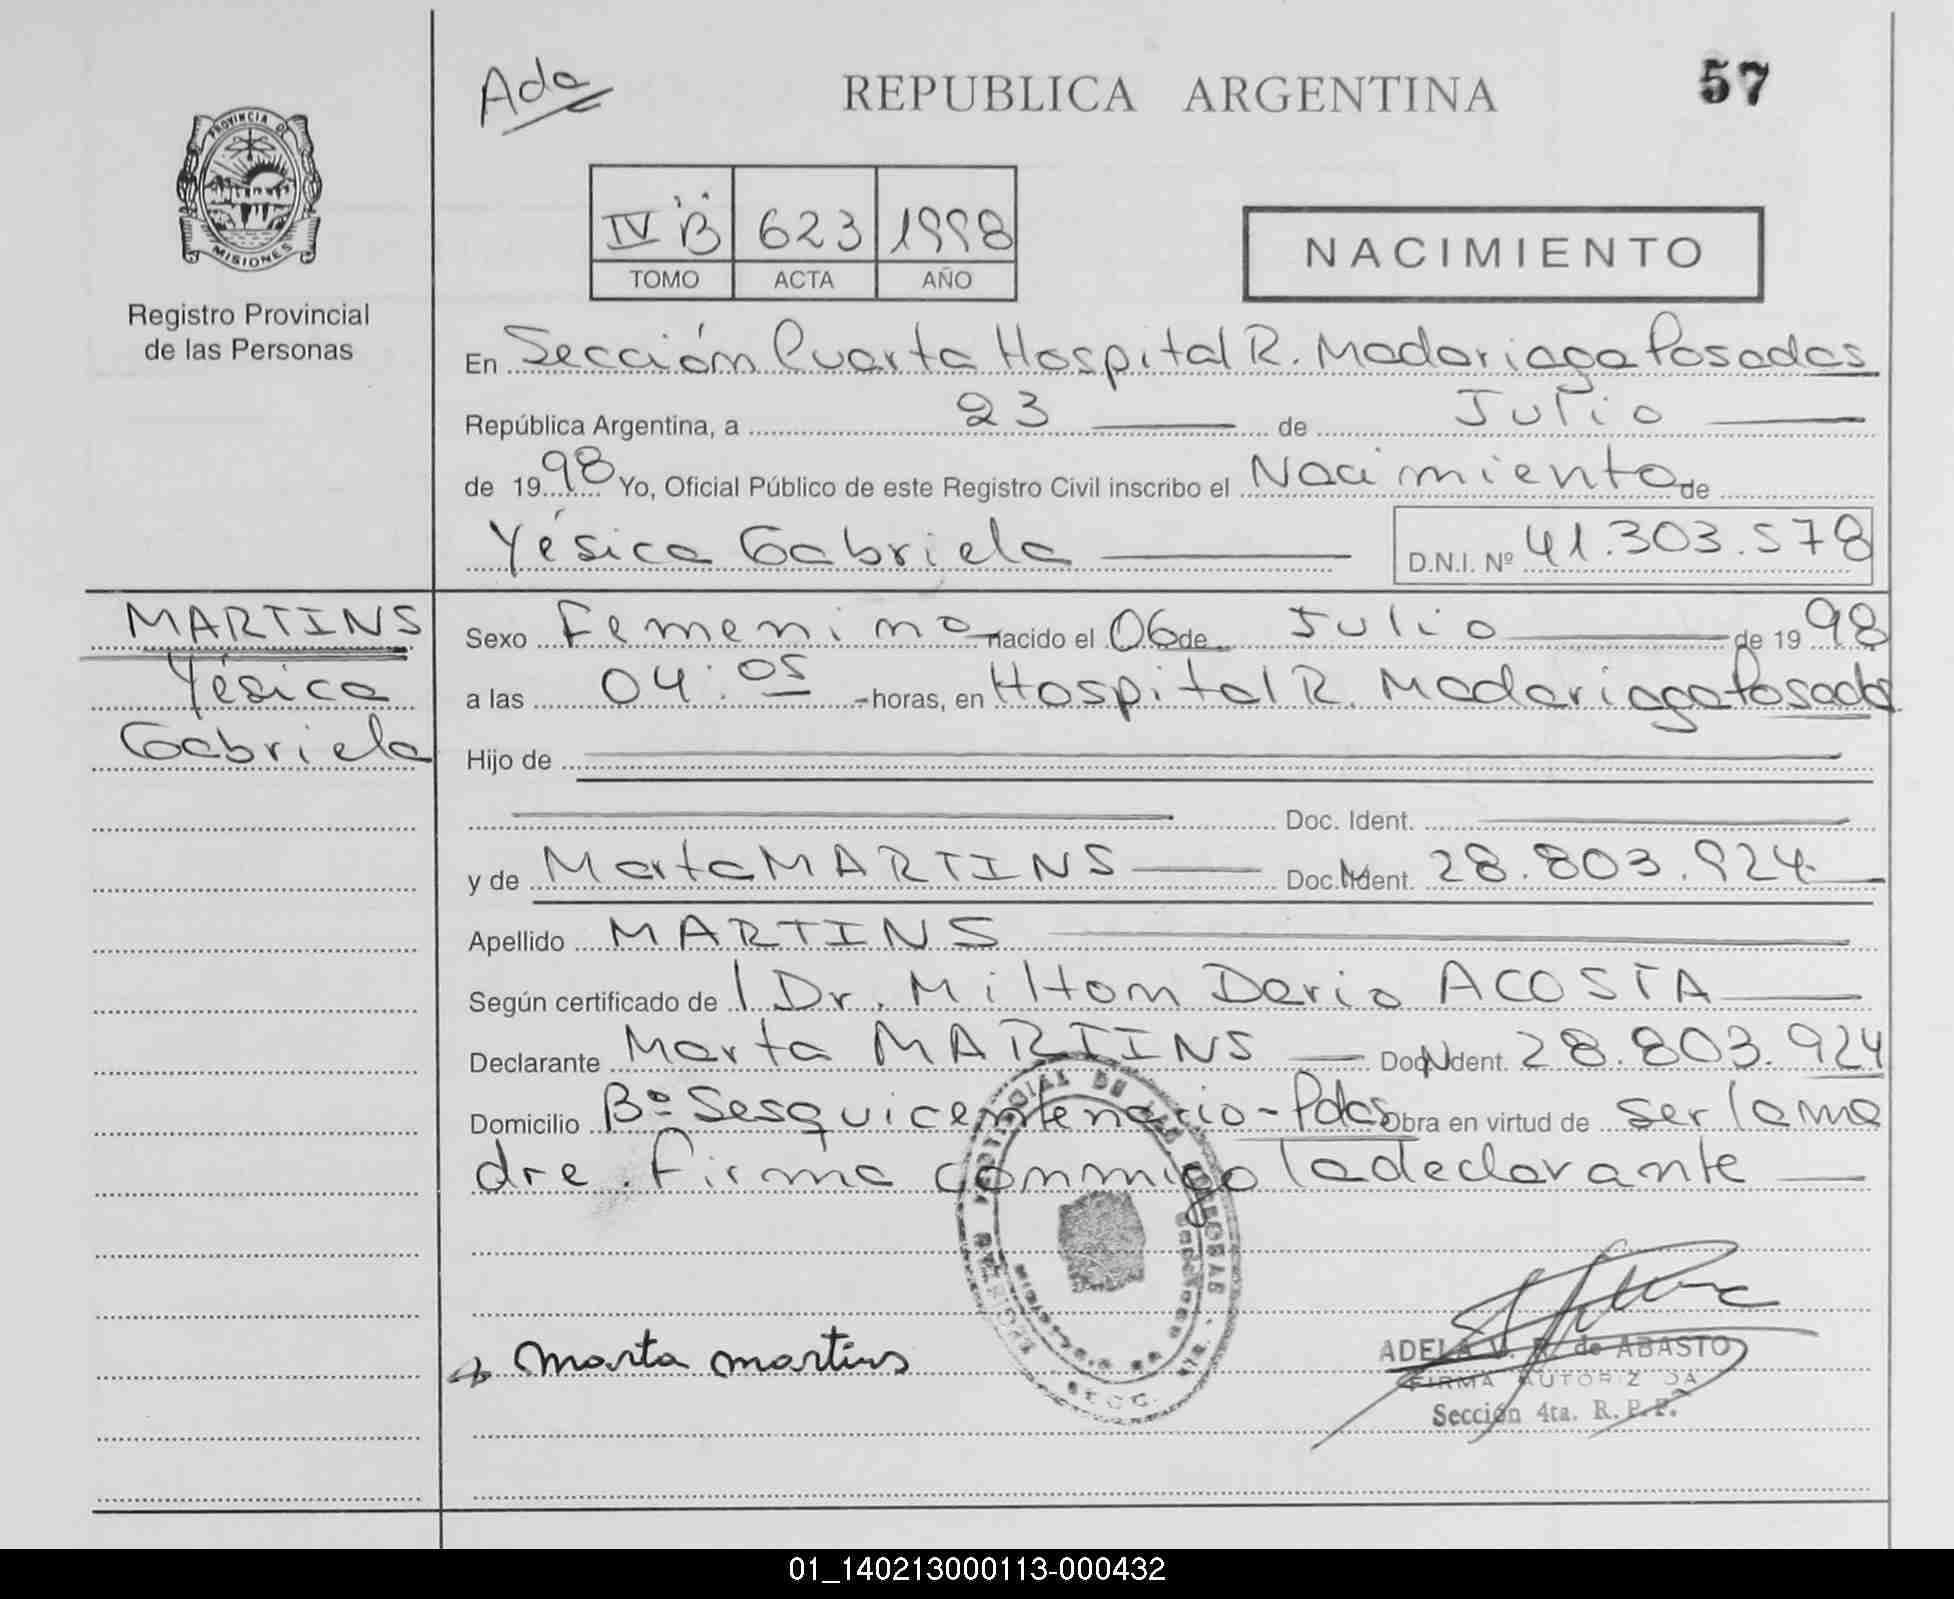 Ada
REPUBLICA ARGENTINA
57
PROVINCIA DE
MISIONES
Registro Provincial
de las Personas
IV "B" 623 1998
TOMO ACTA AÑO
NACIMIENTO
En Sección Cuarta Hospital R. Madariaga Posadas
República Argentina, a 23 de Julio
de 1998 Yo, Oficial Público de este Registro Civil inscribo el Nacimiento de
Yésica Gabriela D.N.I. Nº 41.303.578
MARTINS
Yésica
Gabriela
Sexo Femenino nacido el 06 de Julio de 1998
a las 04:05 horas, en Hospital R. Madariaga Posadas
Hijo de
Doc. Ident.
y de Marta MARTINS Doc. Ident. 28.803.924
Apellido MARTINS
Según certificado de Dr. Milton Dario ACOSTA
Declarante Marta MARTINS Doc. Ident. 28.803.924
Domicilio Bº Sesquicentenario - Pdas Obra en virtud de ser la ma
dre. Firma conmigo la declarante
marta martins
ADELA V. R. de ABASTO
FIRMA AUTORIZADA
Sección 4ta. R.P.P.
01_140213000113-000432